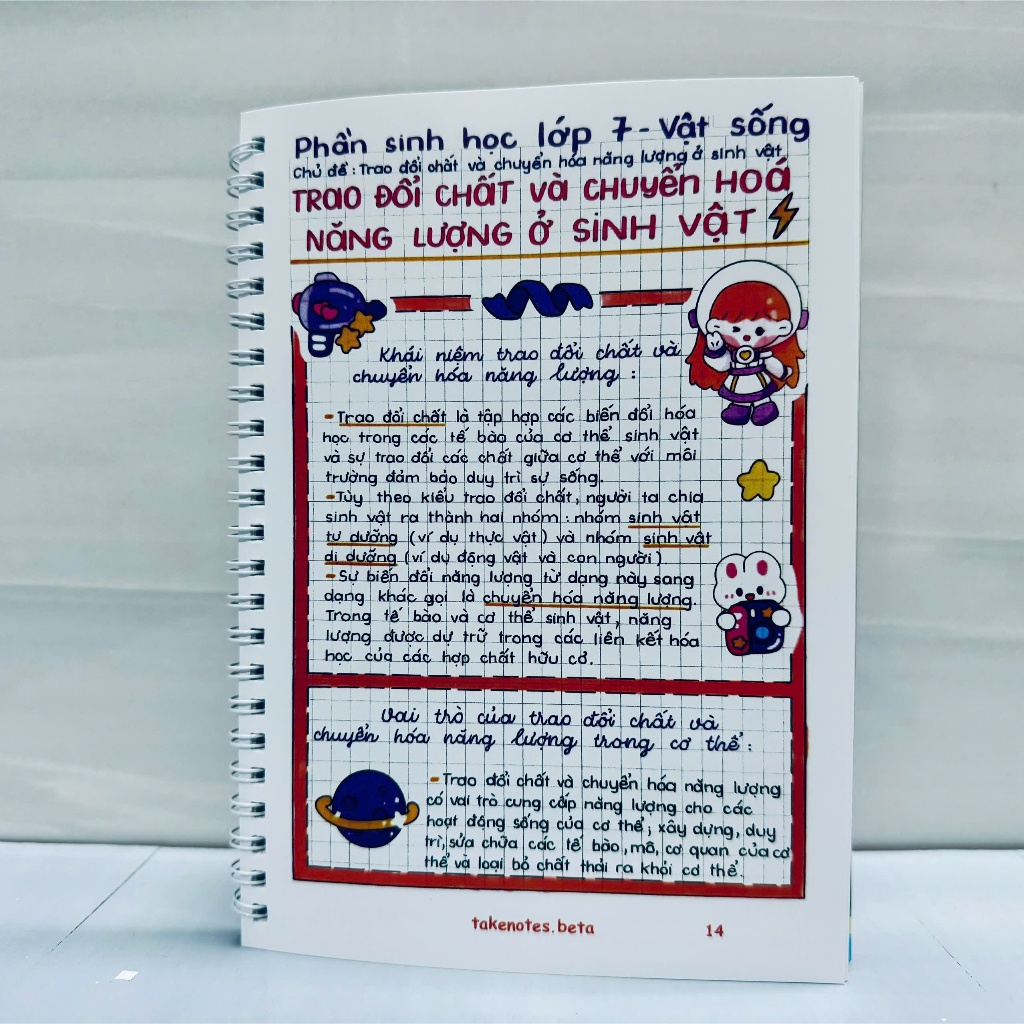 Phần sinh học lớp 7 - Vật sống
Chủ đề : Trao đổi chất và chuyển hóa năng lượng ở sinh vật
TRAO ĐỔI CHẤT VÀ CHUYỂN HOÁ
NĂNG LƯỢNG Ở SINH VẬT
Khái niệm trao đổi chất và
chuyển hóa năng lượng :
- Trao đổi chất là tập hợp các biến đổi hóa
học trong các tế bào của cơ thể sinh vật
và sự trao đổi các chất giữa cơ thể với môi
trường đảm bảo duy trì sự sống.
- Tùy theo kiểu trao đổi chất, người ta chia
sinh vật ra thành hai nhóm : nhóm sinh vật
tự dưỡng (ví dụ thực vật) và nhóm sinh vật
dị dưỡng (ví dụ động vật và con người)
- Sự biến đổi năng lượng từ dạng này sang
dạng khác gọi là chuyển hóa năng lượng.
Trong tế bào và cơ thể sinh vật, năng
lượng được dự trữ trong các liên kết hóa
học của các hợp chất hữu cơ.
Vai trò của trao đổi chất và
chuyển hóa năng lượng trong cơ thể :
- Trao đổi chất và chuyển hóa năng lượng
có vai trò cung cấp năng lượng cho các
hoạt động sống của cơ thể; xây dựng, duy
trì, sửa chữa các tế bào, mô, cơ quan của cơ
thể và loại bỏ chất thải ra khỏi cơ thể.
takenotes.beta
14